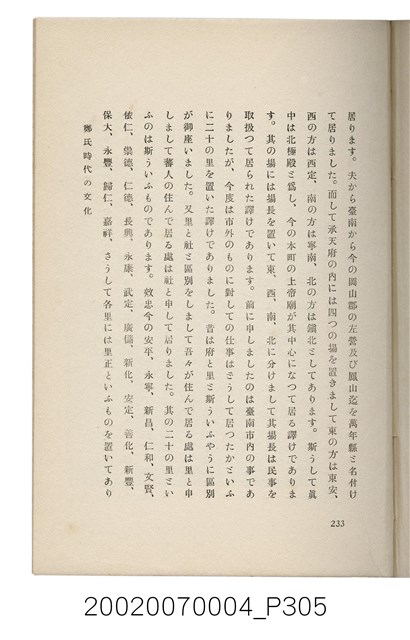 居ります。夫から臺南から今の岡山郡の左營及び鳳山迄を萬年縣と名付け
て居りました。而して承天府の内には四つの場を置きまして東の方は東安、
西の方は西定、南の方は寧南、北の方は鎭北としてあります。斯うして眞
中は北極殿と爲し、今の本町の上帝廟が其中心になつて居る譯でありま
す。其の場には場長を置いて東、西、南、北に分けまして其場長は民事を
取扱つて居られた譯けであります。前に申しましたのは臺南市内の事であ
りましたが、今度は市外のものに對しての仕事はどうして居つたかといふ
に二十の里を置いた譯けでありました。昔は府と里と斯ういふやうに區別
が御座いました。又里と社と區別をしまして吾々が住んで居る處は里と申
しまして蕃人の住んで居る處は社と申して居りました。其の二十の里とい
ふのは斯ういふものであります。效忠今の安平、永寧、新昌、仁和、文賢、
依仁、崇德、仁德、長興、永康、武定、廣儲、新化、安定、善化、新豐、
保大、永豐、歸仁、嘉祥、さうして各里には里正といふものを置いてあり
鄭氏時代の文化
233
20020070004_P305